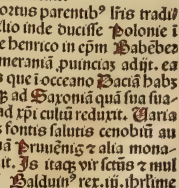 oztus parentibꝰ lr̄is tradi
lio inde ducisse Polonie i
e henrico in ep̄m Babēbe
merania ꝓuincias adijt. ea
s que i oceano Daciā habꝫ
ad Saxoniā quā sua sua
ad xp̄i cultū reduxit. Uaria
s fontis salutis cenobiū au
ā Pruuēnig ⁊ alia mona
it. Is itaqꝫ vir sct̄us ⁊ mul
Balduinꝰ rex .iij. ihr̄lime